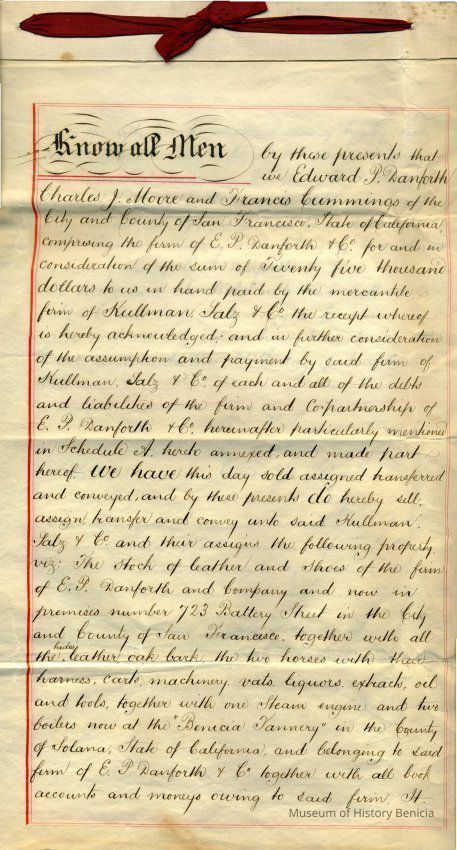 Know all Men by these presents that
we Edward P. Danforth
Charles J. Moore and Francis Cummings of the
City and County of San Francisco, State of California,
comprising the firm of E. P. Danforth & Co. for and in
consideration of the sum of Twenty five thousand
dollars to us in hand paid by the mercantile
firm of Kullman, Salz & Co. the receipt whereof
is hereby acknowledged; and in further consideration
of the assumption and payment by said firm of
Kullman, Salz & Co. of each and all of the debts
and liabilities of the firm and Copartnership of
E. P. Danforth & Co. hereinafter particularly mentioned
in Schedule A. hereto annexed, and made part
hereof. We have this day sold assigned transferred
and conveyed, and by these presents do hereby sell,
assign, transfer and convey unto said Kullman,
Salz & Co. and their assigns the following property
viz: The stock of leather and shoes of the firm
of E. P. Danforth and Company and now in
premises number 723 Battery Street in the City
and County of San Francisco, together with all
the hides, leather, oak bark, the two horses with their
harness, carts, machinery, vats, liquors, extracts, oil
and tools, together with one Steam engine and two
boilers now at the "Benicia Tannery" in the County
of Solana, State of California, and belonging to said
firm of E. P. Danforth & Co together with all book
accounts and moneys owing to said firm, It
Museum of History Benicia